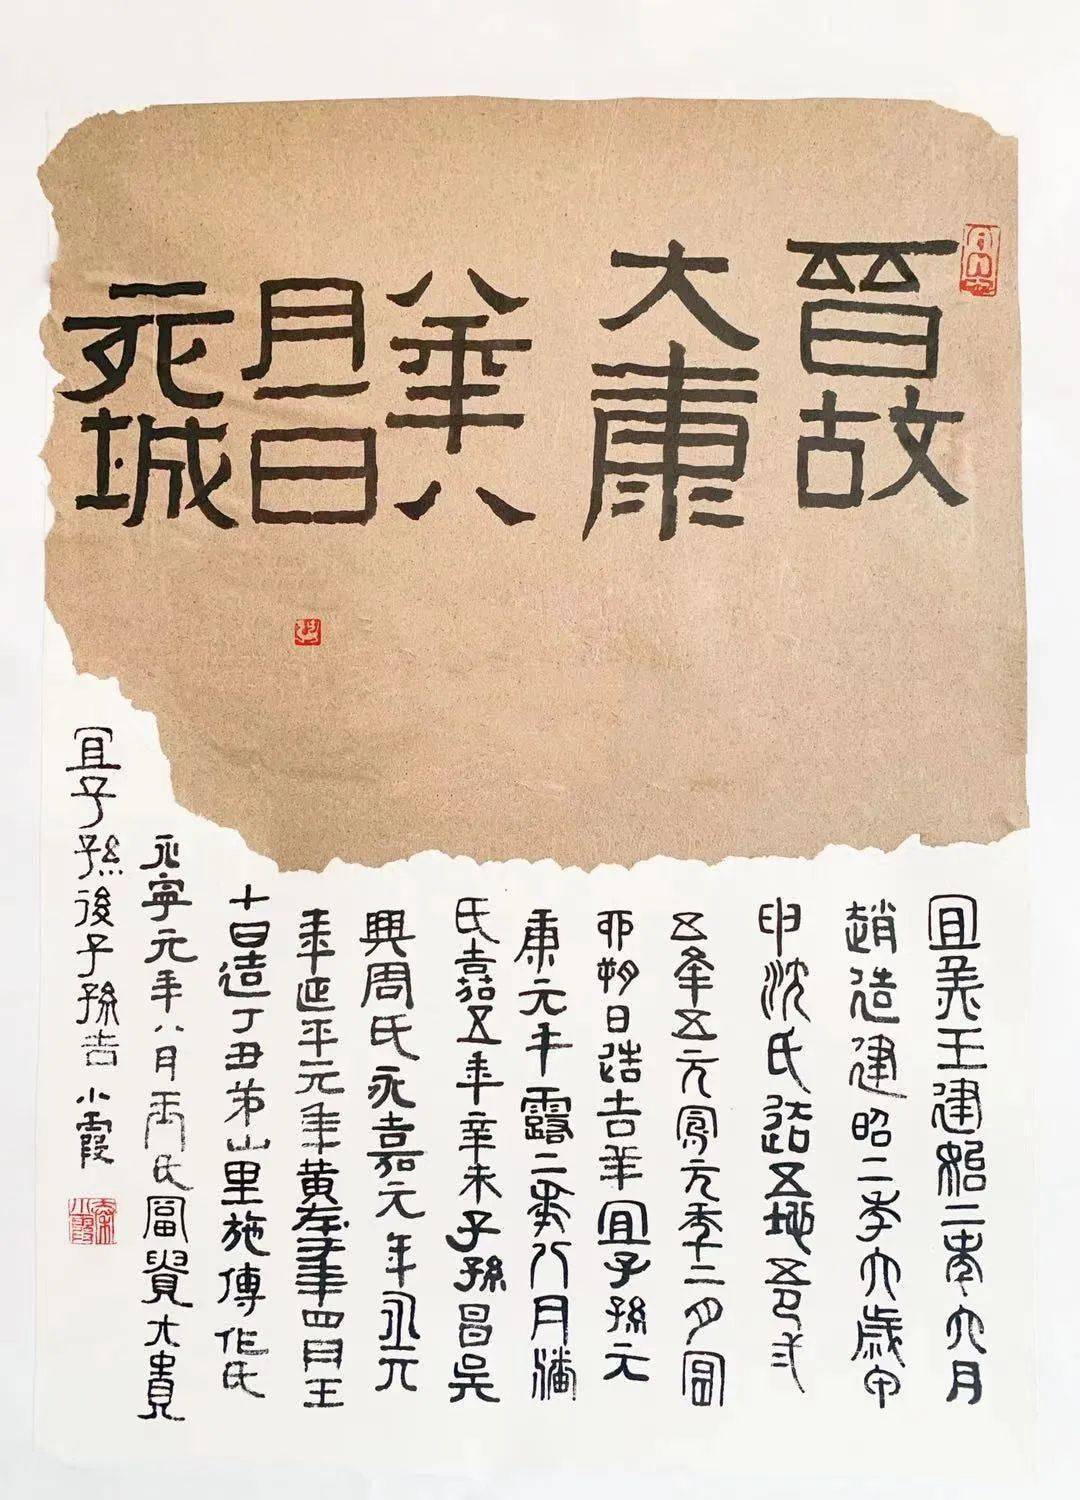 晉故
大康
八年八
月一日
死城
宜美王建始二年六月
趙造建昭二年大歲甲
申沈氏造五地五
五年五元鳳元年十二月
朔日造吉羊宜子孫元
康元年露二年八月潘
氏嘉五年辛未子孫昌吳
興周氏永嘉元年永元
年延平元年黃 年四月王
十日造丁丑弟山里施傳作氏
永寧元年八月 氏富貴大貴
宜子孫後子孫吉 小霞